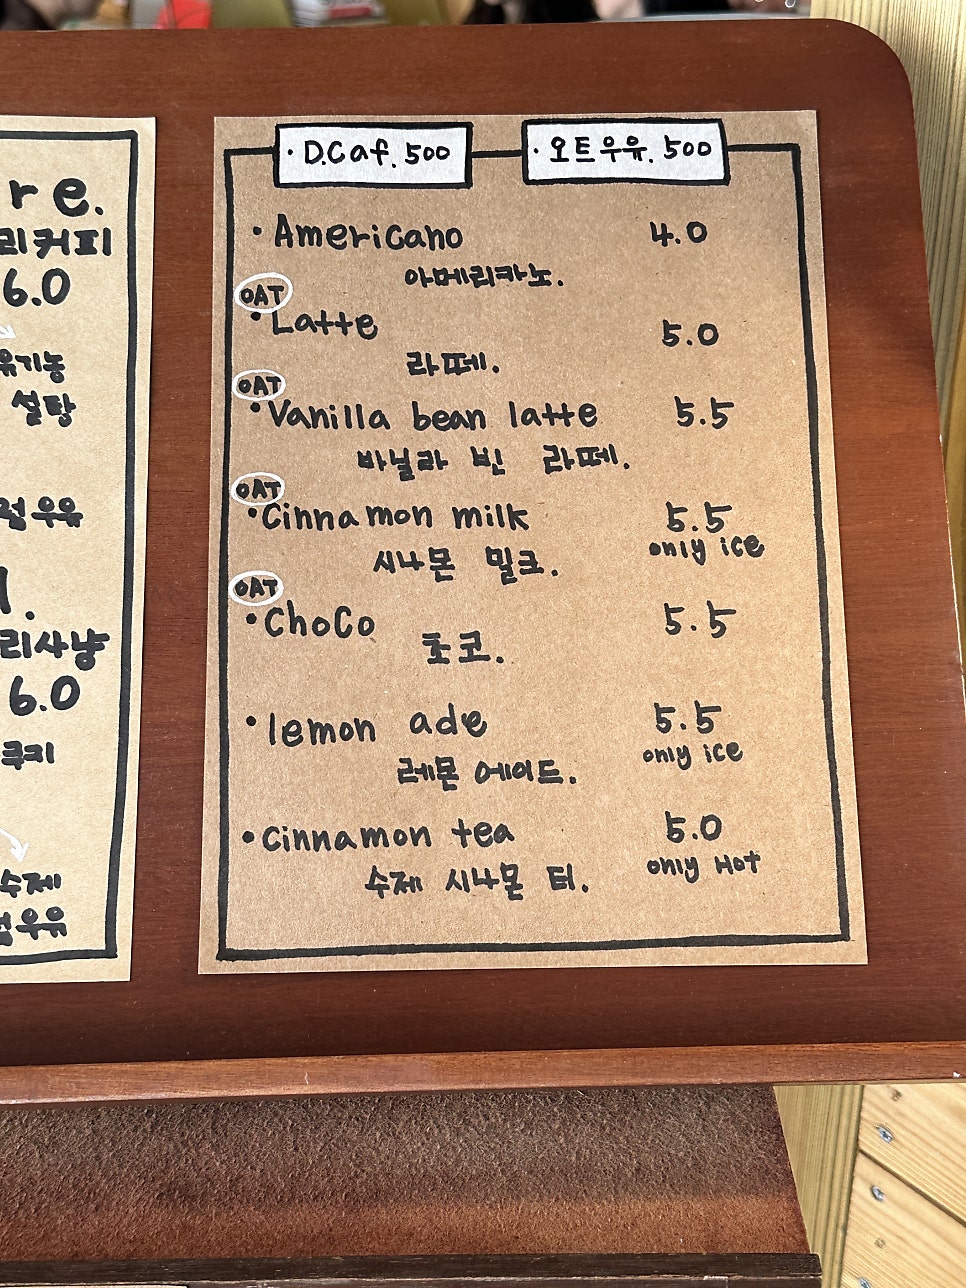 re.
리커피
6.0
유기농
설탕
우유
.
리사냥
6.0
쿠키
수제
우유
· D.Caf. 500
· 오트우유. 500
· Americano 4.0
아메리카노.
OAT
· Latte 5.0
라떼.
OAT
· Vanilla bean latte 5.5
바닐라 빈 라떼.
OAT
· Cinnamon milk 5.5
only ice
시나몬 밀크.
OAT
· ChoCo 5.5
초코.
· lemon ade 5.5
only ice
레몬 에이드.
· cinnamon tea 5.0
only Hot
수제 시나몬 티.